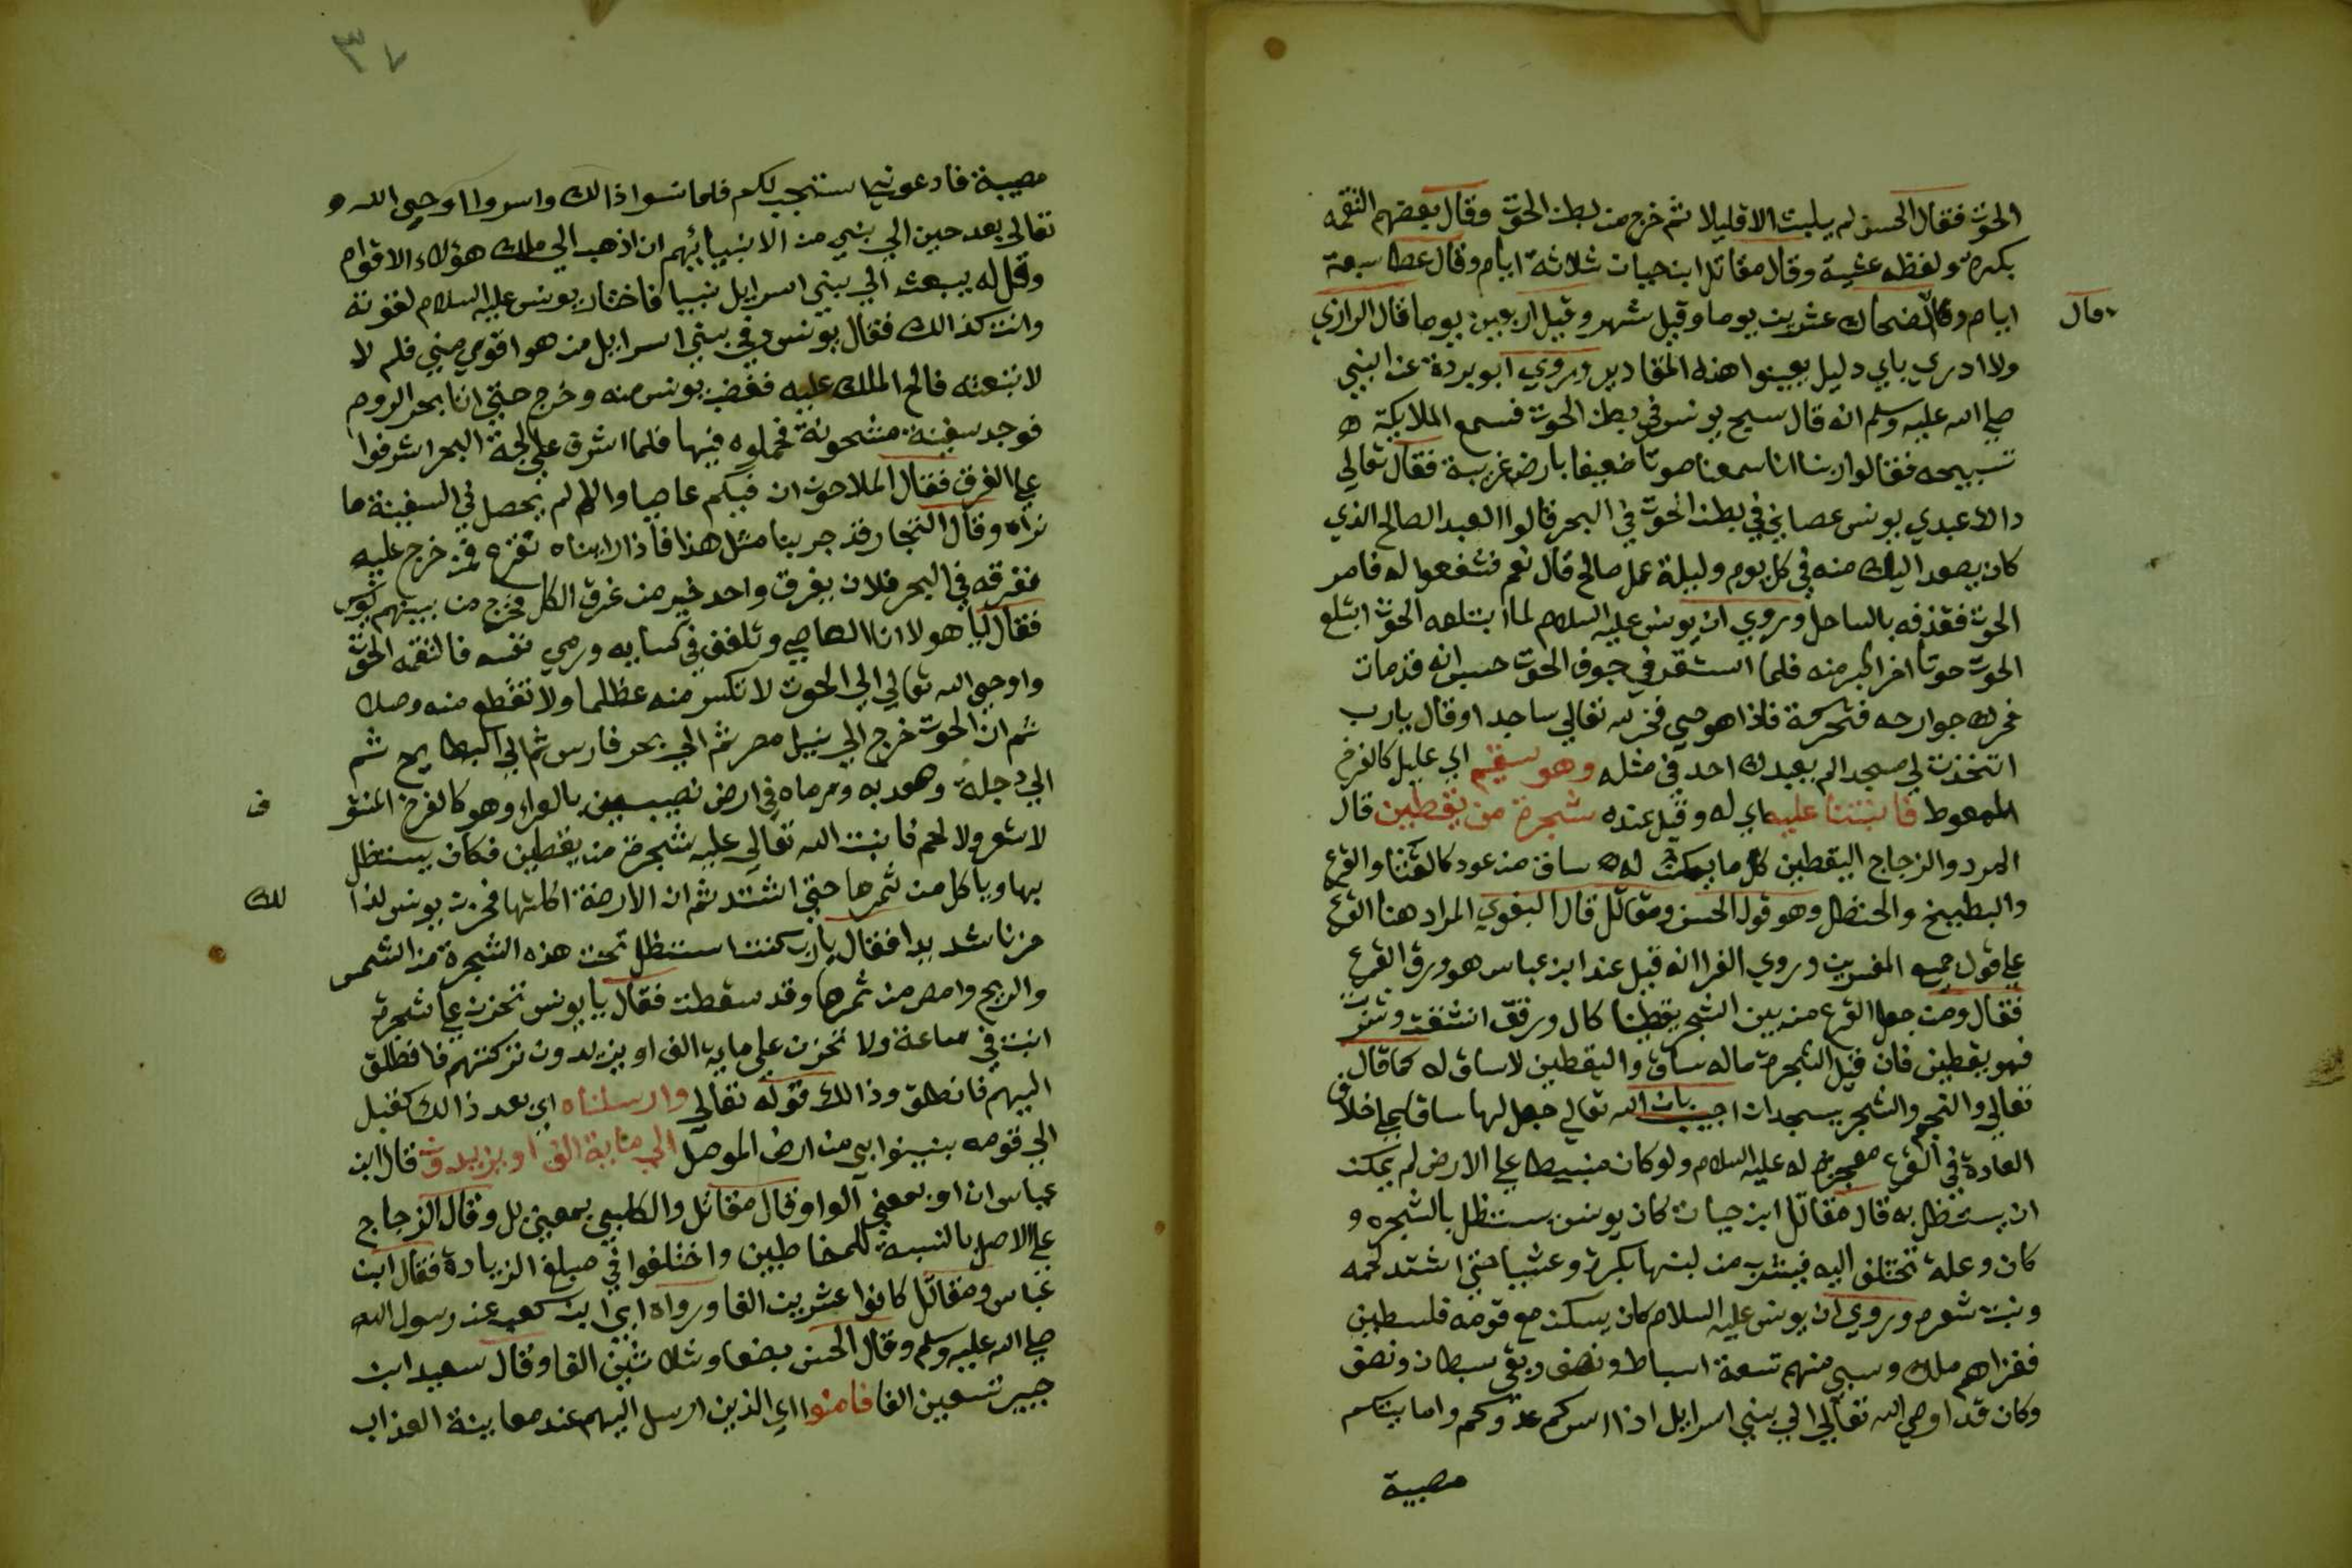 الحوت فقال الحسن لم يلبث الا قليلا ثم خرج من بطن الحوت وقال بعضهم التقمه
بكرة ولفظه عشية وقال مقاتل ابن حيان ثلاثة ايام وقال عطا سبعة
ايام وقال الضحاك عشرين يوما وقيل شهر وقيل اربعين يوما قال الرازي
وقال
ولا ادري باي دليل يعينوا هذه المقادير وروي ابو بردة عن النبي
صلي الله عليه وسلم انه قال سبح يونس في بطن الحوت فسمع الملايكة
تسبيحه فقالوا ربنا انا سمعنا صوتا ضعيفا بارض غريبة فقال تعالي
ذاك عبدي يونس عصاني في بطن الحوت في البحر قالوا العبد الصالح الذي
كان يصعد اليك منه في كل يوم وليلة عمل صالح قال نعم فشفعوا له فامر
الحوت فقذفه بالساحل وروي ان يونس عليه السلام لما ابتلعه الحوت ابتلع
الحوت حوتا اخر اكبر منه فلما استقر في جوف الحوت حسب انه قد مات
فحرك جوارحه فتحركة فاذا هو حي فخر لله تعالي ساجدا وقال يارب
اتخذت لي مسجدا لم يعبدك احد في مثله وهو سقيم اي عليل كالفرخ
الممعوط فانبتنا عليه اي له وقيل عنده شجرة من يقطين قال
المبرد والزجاج اليقطين كل ما لم يكن له ساق من عود كالقثا والقرع
والبطيخ والحنظل وهو قول الحسن ومقاتل قال البغوي المراد هنا القرع
علي قول جميع المفسرين وروي الفرا انه قيل عند ابن عباس هو ورق القرع
فقال ومن جعل القرع من بين الشجر يقطينا كل ورقة انشقت وشربت
فهو يقطين فان قيل الشجرة ماله ساق واليقطين لا ساق له كما قال
تعالي والنجم والشجر يسجدان اجيب بان الله تعالي جعل لها ساق علي خلاف
العادة في القرع معجزة له عليه السلام ولو كان منبسطا علي الارض لم يمكن
ان يستظل به قال مقاتل ابن حيان كان يونس يستظل بالشجرة و
كان وعلة تختلف اليه فيشرب من لبنها بكرة وعشيا حتي اشتد لحمه
ونبت شعره وروي ان يونس عليه السلام كان يسكن مع قومه فلسطين
فغزاهم ملك وسبي منهم تسعة اسباط ونصف وبقي سبطان ونصف
وكان قد اوحي الله تعالي الي بني اسرايل اذا اسركم عدوكم واصابتكم
مصيبة
٣٧
مصيبة فادعوني استجب لكم فلما نسوا ذالك واسروا اوحي الله و
تعالي بعد حين الي نبي من الانبيائهم ان اذهب الي ملك هؤلاء الاقوام
وقل له يبعث الي بني اسرايل نبيا فاختار يونس عليه السلام لقوته
وانت كذالك فقال يونس وفي بني اسرايل من هو اقوي مني فلم لا
لا نبعثه فالح الملك عليه فغضب يونس منه وخرج حتي اتا بحر الروم
فوجد سفينة مشحونة فحملوه فيها فلما اشرق علي لجة البحر اشرفوا
علي الغرق فقال الملاحون ان فيكم عاصيا والا لم يحصل في السفينة ما
نراه وقال التجار قد جربنا مثل هذا فاذا رايناه نقترع فمن خرج عليه
نغرقه في البحر فلان يغرق واحد خير من غرق الكل فخرج من بينهم يونس
فقال يا هولا انا العاصي وتلفف في كسايه ورمي نفسه فالتقمه الحوت
واوحي الله تعالي الي الحوت لا تكسر منه عظلما ولا تقطع منه وصلا
ثم ان الحوت خرج الي نيل مصر ثم الي بحر فارس ثم الي البطايح ثم
الي دجلة وصعد به ورماه في ارض نصيبين بالعراء وهو كالفرخ المنتو
ف
لا شعر ولا لحم فانبت الله تعالي عليه شجرة من يقطين فكان يستظل
بها وياكل من ثمرها حتي اشتد ثم ان الارضة اكلتها فحزن يونس لذا
لك
حزنا شديدا فقال يارب كنت استظل تحت هذه الشجرة من الشمس
والريح وامص من ثمرها وقد سقطت فقال يا يونس تحزن علي شجرة
انبتت في ساعة ولا تحزن علي ماية الف او يزيدون تركتهم فانطلق
اليهم فانطلق وذالك قوله تعالي وارسلناه اي بعد ذالك كقبل
الي قومه بنينوا بي من ارض الموصل الي ماية الف او يزيدون قال ابن
عباس ان او بمعني الواو وقال مقاتل والكلبي بمعني بل وقال الزجاج
علي الاصل بالنسبة للمخاطبين واختلفوا في مبلغ الزيادة فقال ابن
عباس ومقاتل كانوا عشرين الفا ورواه ابي ابن كعب عن رسول الله
صلي الله عليه وسلم وقال الحسن بضعا وثلاثين الفا وقال سعيد ابن
جبير تسعين الفا فامنوا اي الذين ارسل اليهم عند معاينة العذاب